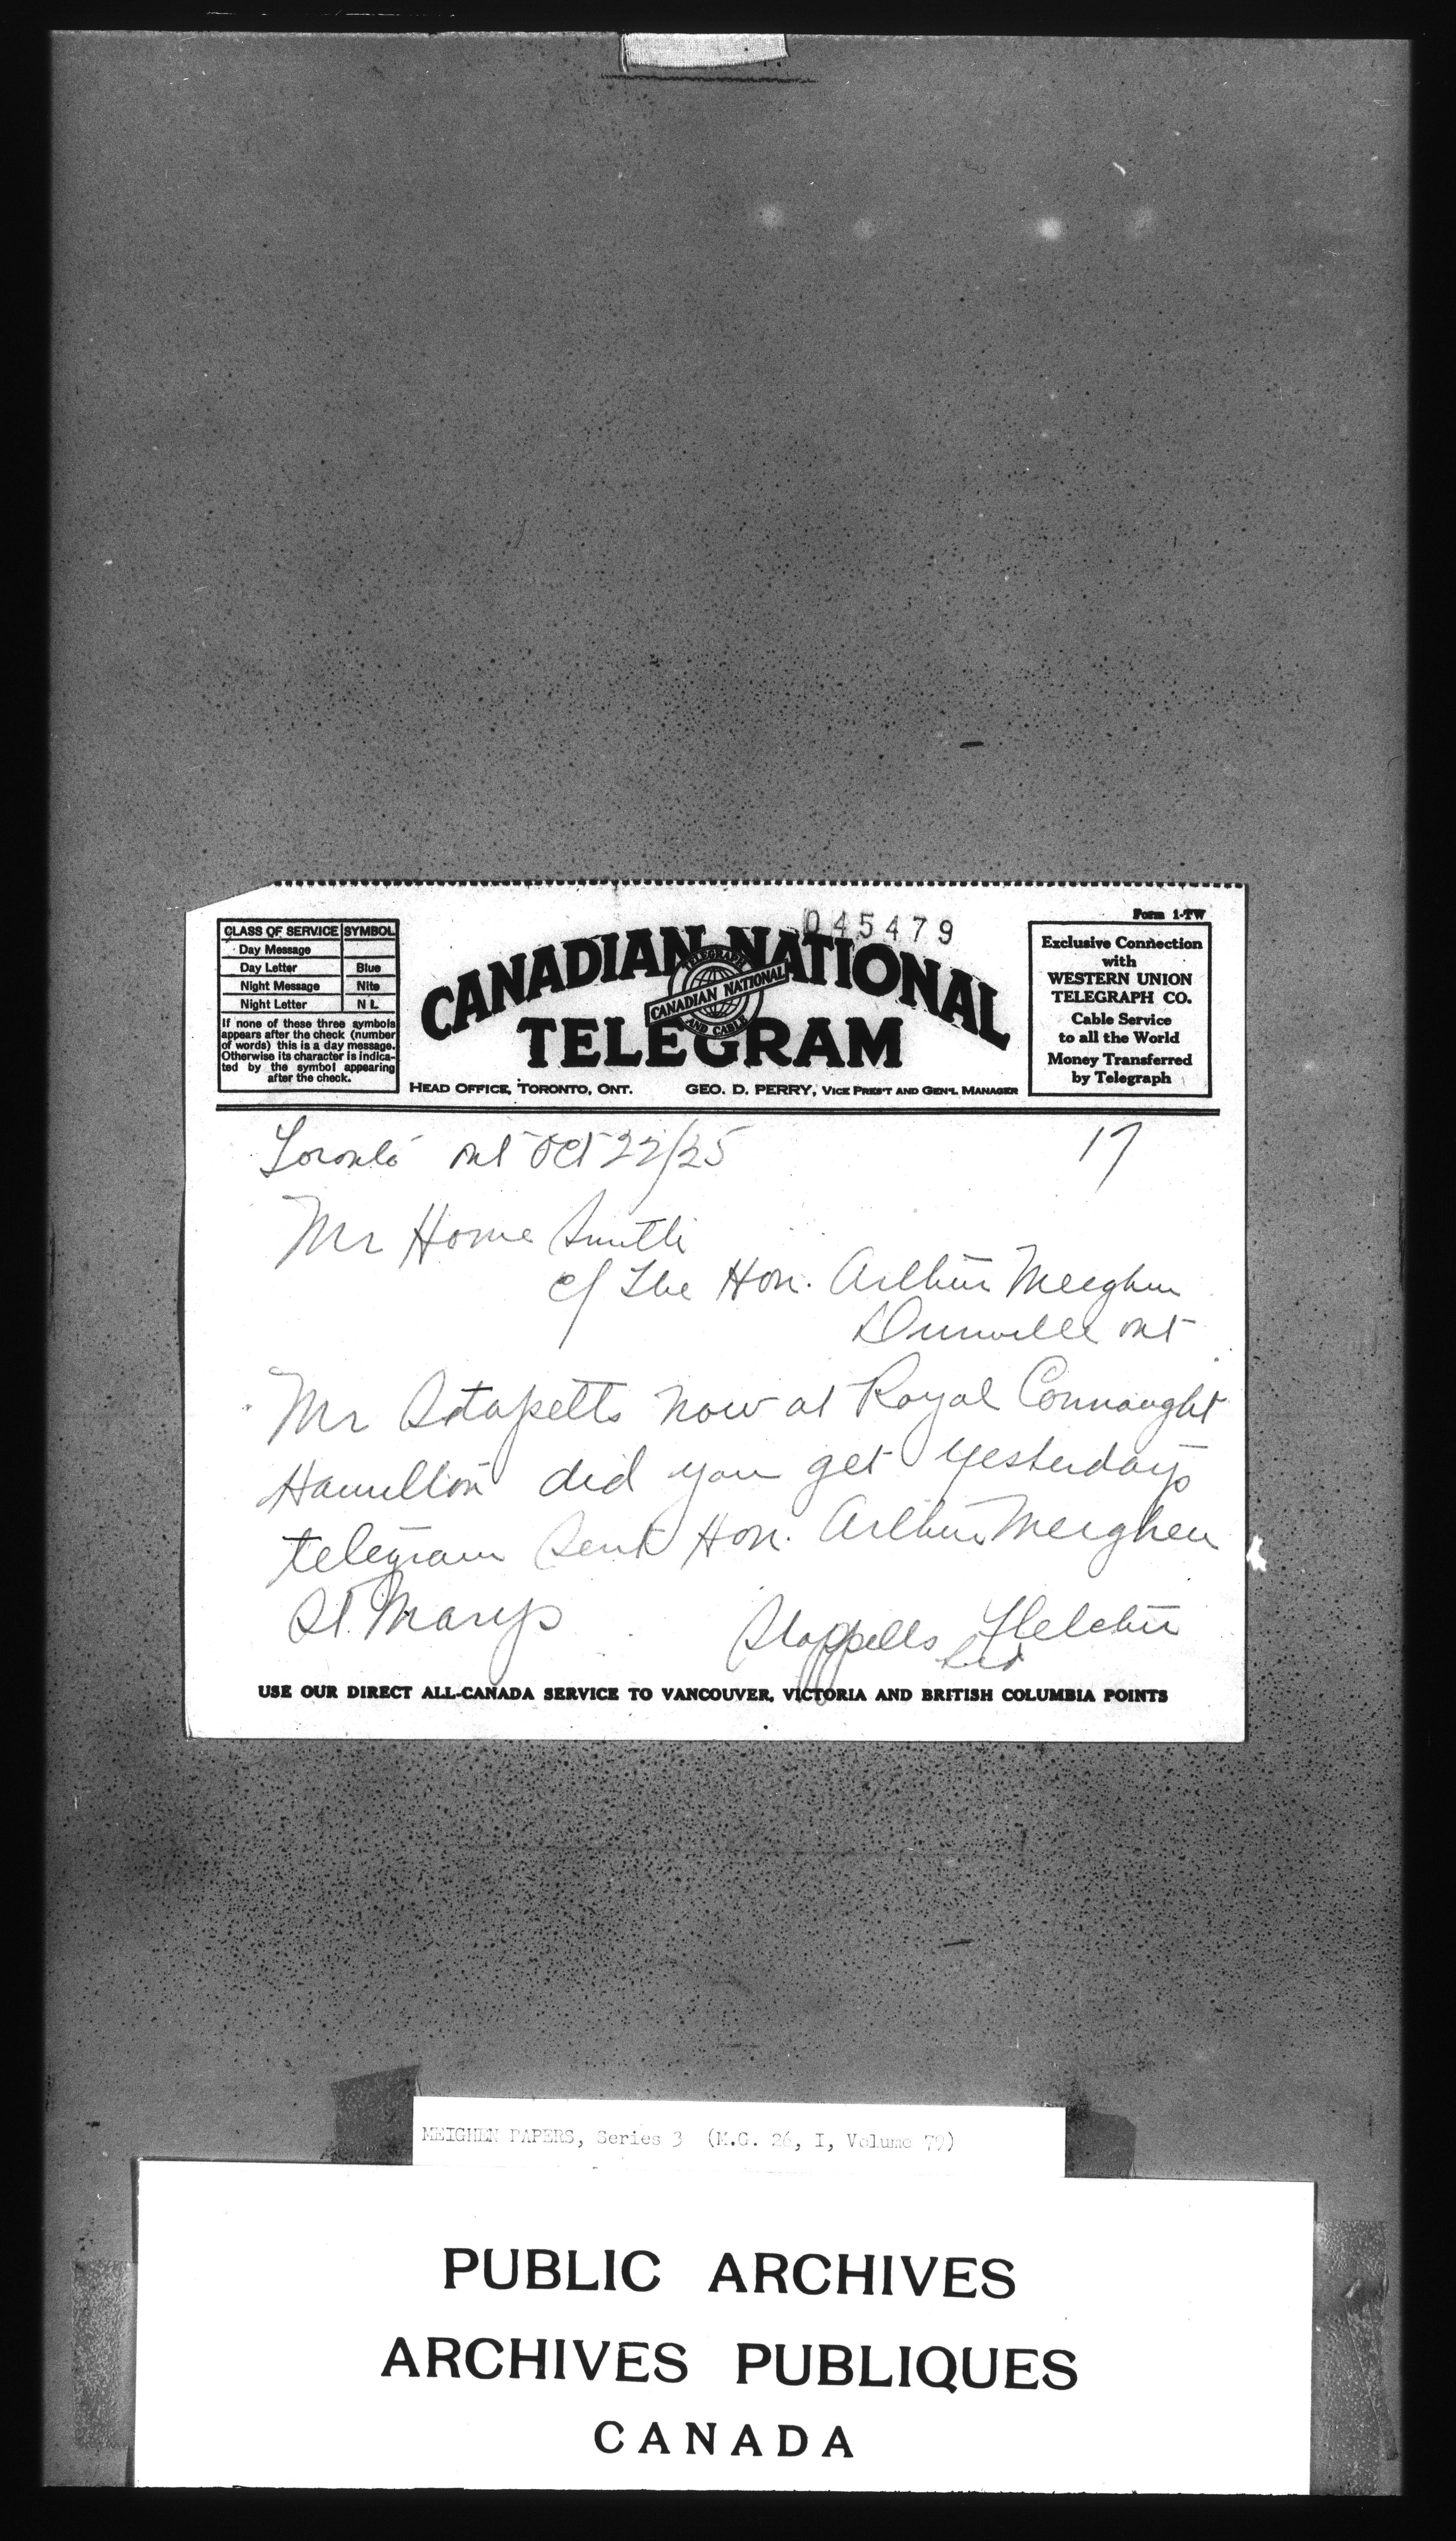 045479
Form 1-TW
CLASS OF SERVICE SYMBOL
Day Message
Day Letter Blue
Night Message Nite
Night Letter N L
If none of these three symbols
appears after the check (number
of words) this is a day message.
Otherwise its character is indica-
ted by the symbol appearing
after the check.
CANADIAN NATIONAL
TELEGRAPH
CANADIAN NATIONAL
AND CABLE
TELEGRAM
HEAD OFFICE, TORONTO, ONT. GEO. D. PERRY, VICE PRES'T AND GEN'L MANAGER
Exclusive Connection
with
WESTERN UNION
TELEGRAPH CO.
Cable Service
to all the World
Money Transferred
by Telegraph
Toronto Ont Oct 22/25 17
Mr Home Smith
c/ The Hon. Arthur Meighen
Dunville Ont
Mr Stapells now at Royal Connaught
Hamilton did you get yesterdays
telegram sent Hon. Arthur Meighen
St. Marys
Stappells Fletcher
Ltd
USE OUR DIRECT ALL-CANADA SERVICE TO VANCOUVER, VICTORIA AND BRITISH COLUMBIA POINTS
MEIGHEN PAPERS, Series 3 (M.G. 26, I, Volume 79)
PUBLIC ARCHIVES
ARCHIVES PUBLIQUES
CANADA